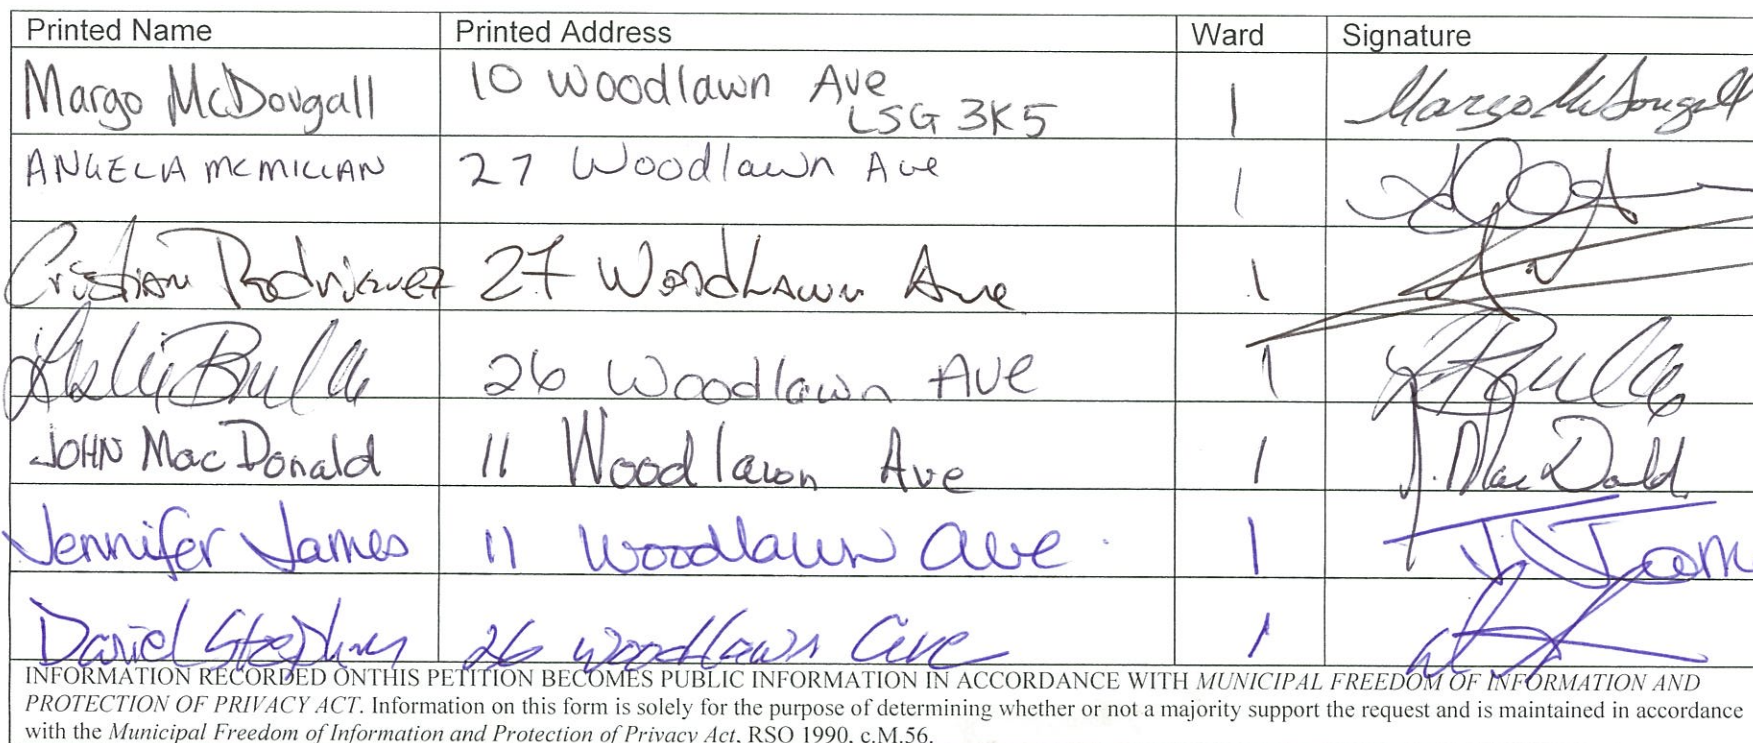 Printed Name Printed Address Ward Signature
Margo McDougall 10 Woodlawn Ave 1 Margo McDougall
L5G 3K5
ANGELA MCMILLAN 27 Woodlawn Ave 1
Cristian Rodriguez 27 WoodLawn Ave 1
26 Woodlawn Ave 1
JOHN MacDonald 11 Woodlawn Ave 1 J. MacDonald
Jennifer James 11 Woodlawn ave 1 J. Jam
Daniel Stephens 26 woodlawn ave 1
INFORMATION RECORDED ONTHIS PETITION BECOMES PUBLIC INFORMATION IN ACCORDANCE WITH MUNICIPAL FREEDOM OF INFORMATION AND
PROTECTION OF PRIVACY ACT. Information on this form is solely for the purpose of determining whether or not a majority support the request and is maintained in accordance
with the Municipal Freedom of Information and Protection of Privacy Act, RSO 1990, c.M.56.